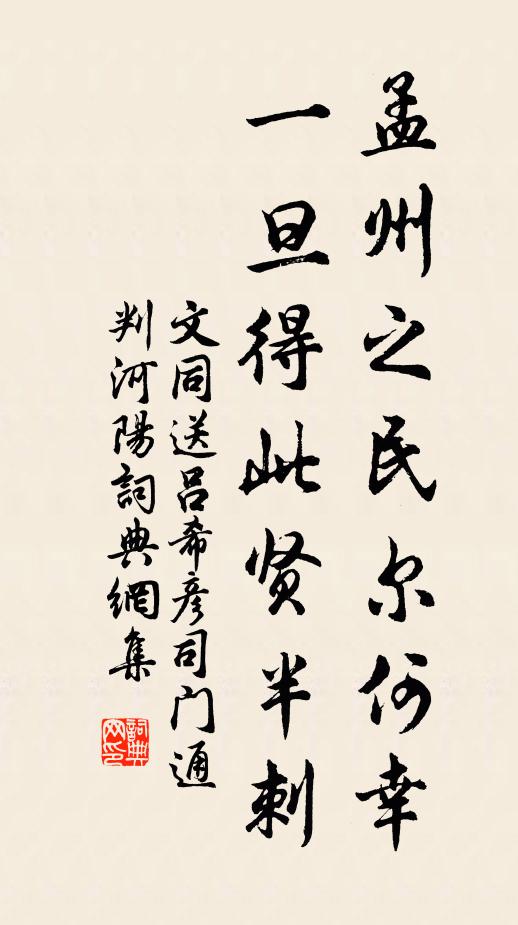 孟州之民尔何幸
一旦得此贤半刺
文同送吕希彦司门通
判河陽詞典網集
詞典
网印